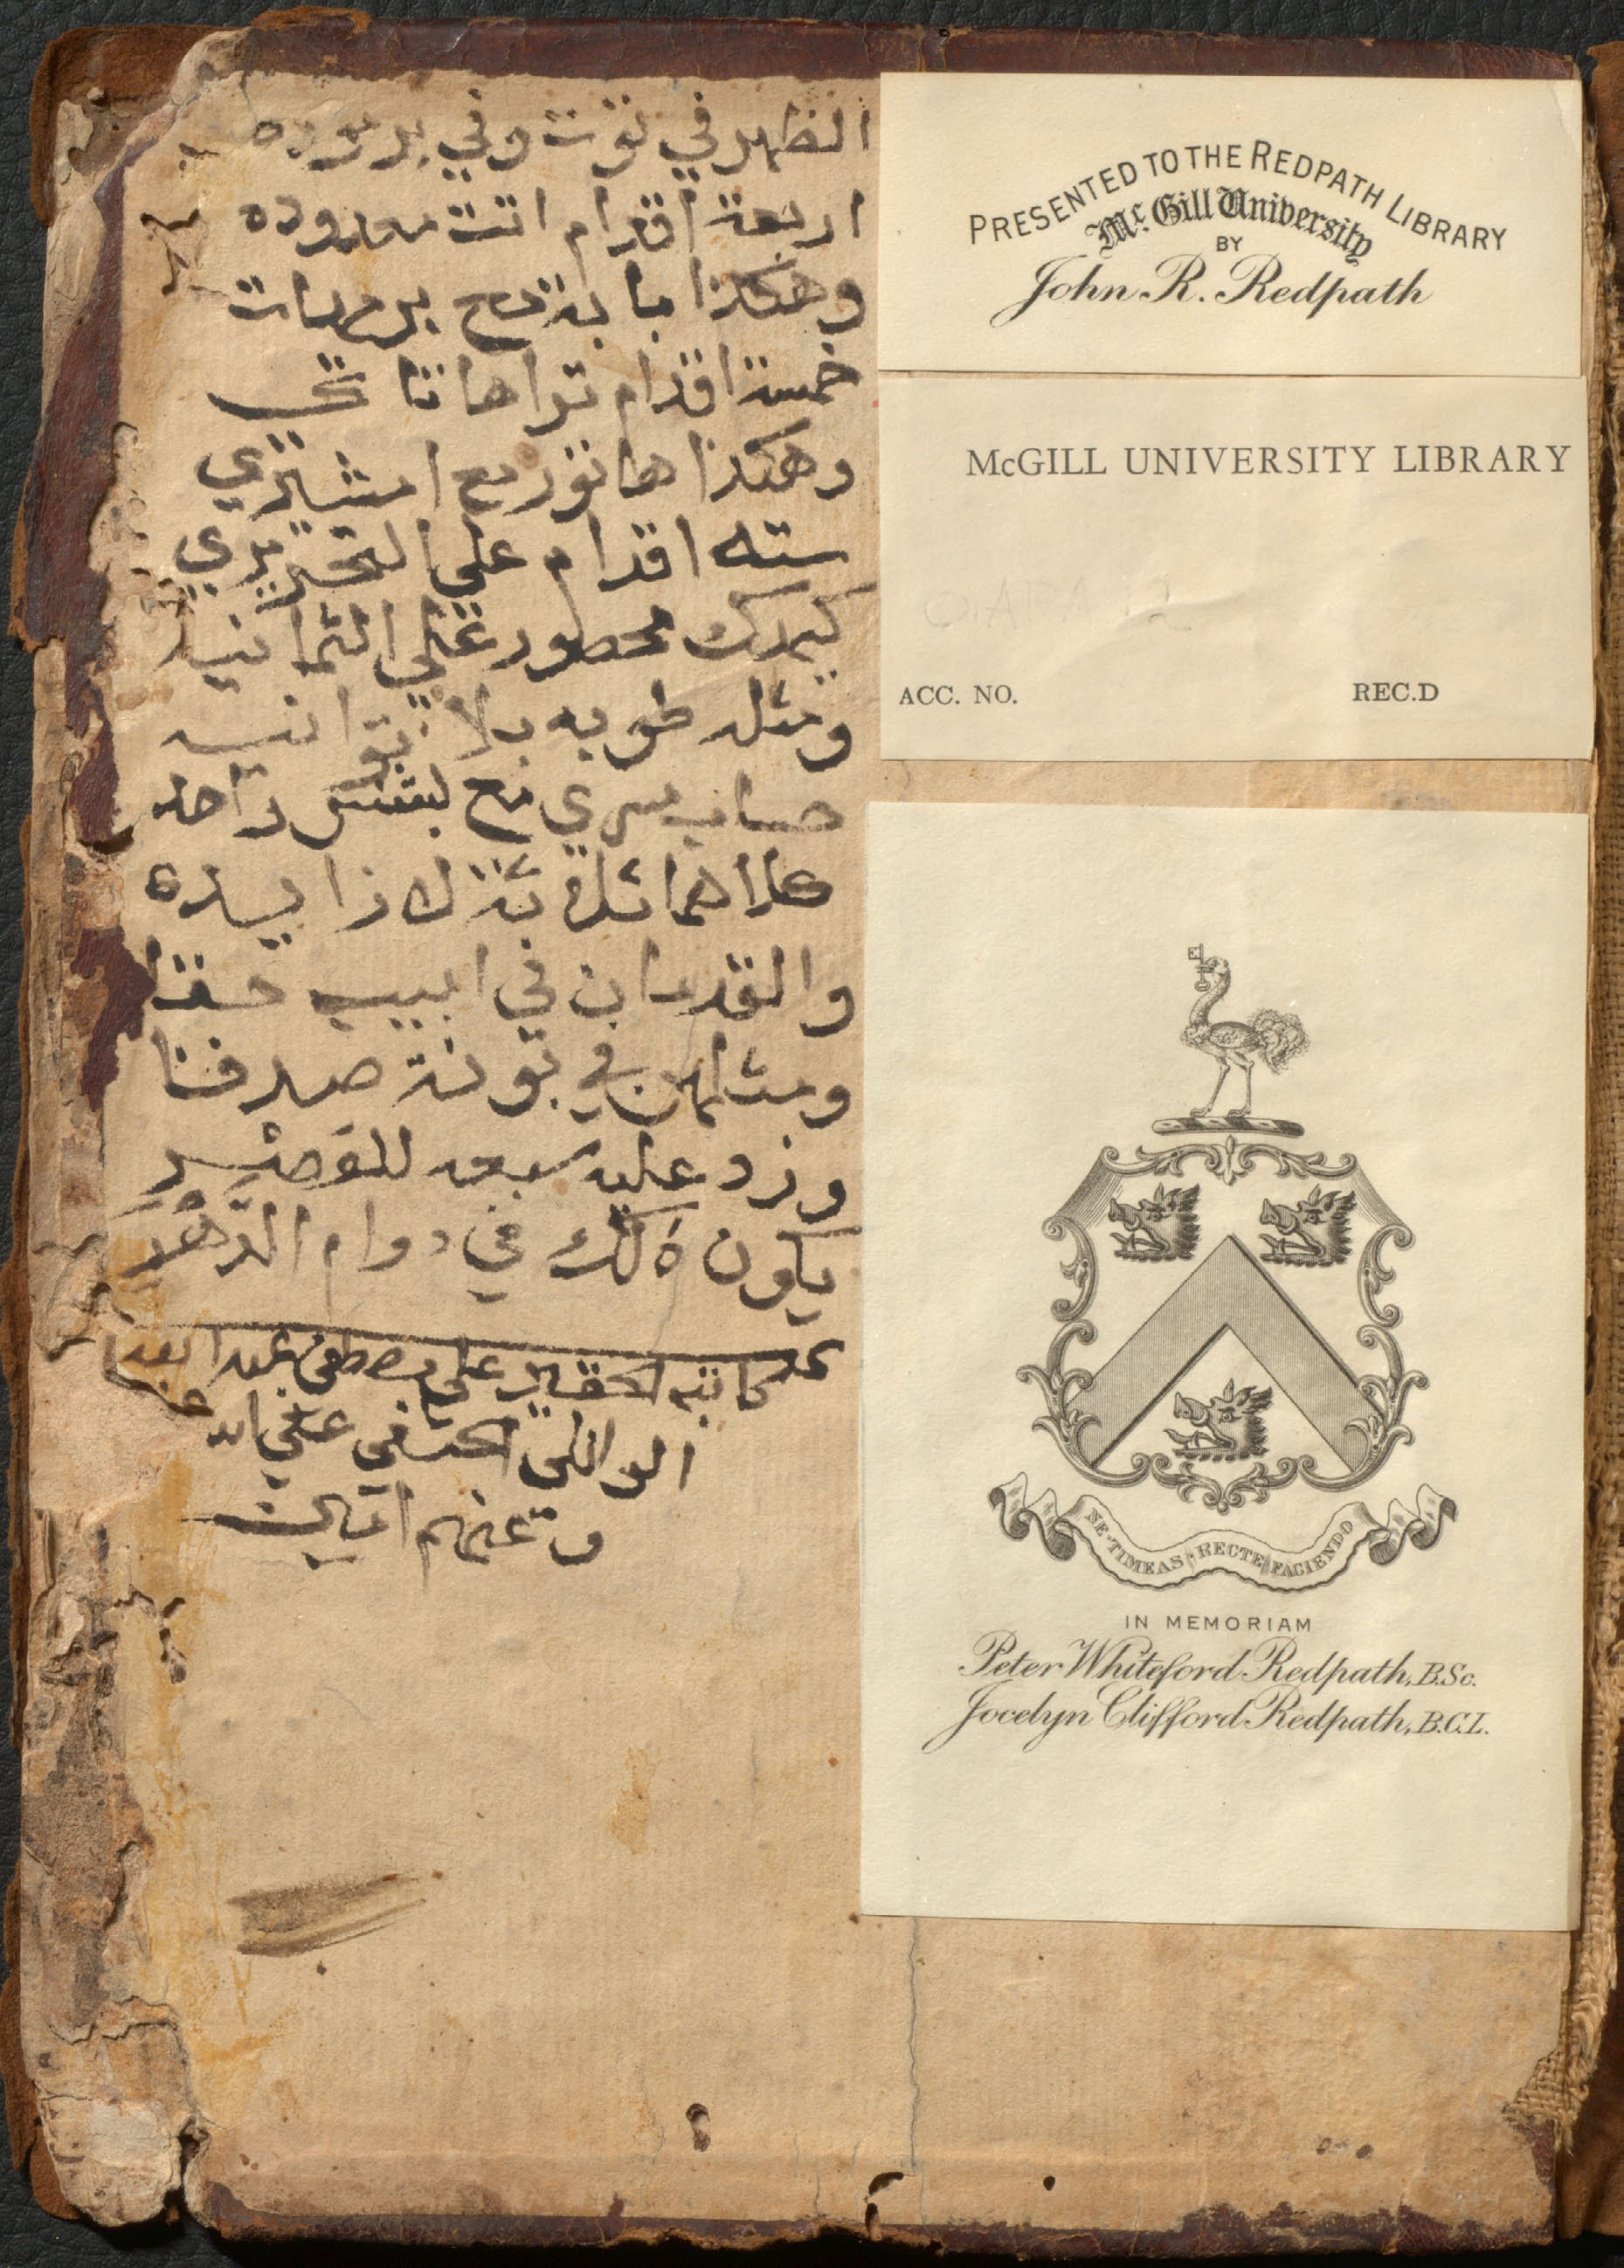 الظهر في توت وفي برموده
اربعة اقدام اتت معدوده
وهكذا بابة مع برمهات
خمسة اقدام تراها تاتي
وهكذا هاتور مع امشيري
سته اقدام على التحريري
كيهك محصور على الثمانيه
ومثله طوبه بلا توانيه
حساب مسري مع بشنس واحد
كلاهما ثلاثة لا زايده
والقدمان في ابيب حقا
ومثلهن في بونة صدقنا
وزد عليه سبعه للعصر
يكون ذلك في دوام الدهر
كاتبه الحقير علي مصطفى
الوائلي الحنفي
وعنهم
PRESENTED TO THE REDPATH LIBRARY
McGill University
BY
John R. Redpath
McGILL UNIVERSITY LIBRARY
ACC. NO. REC.D
NE·TIMEAS RECTE FACIENDO
IN MEMORIAM
Peter Whiteford Redpath, B.Sc.
Jocelyn Clifford Redpath, B.C.L.